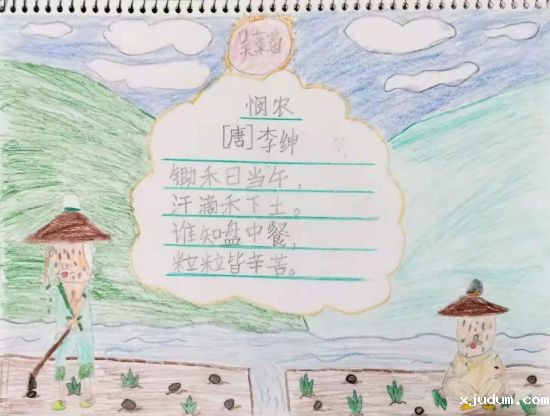 悯农
[唐]李绅
锄禾日当午,
汗滴禾下土。
谁知盘中餐,
粒粒皆辛苦。
xjudum.com